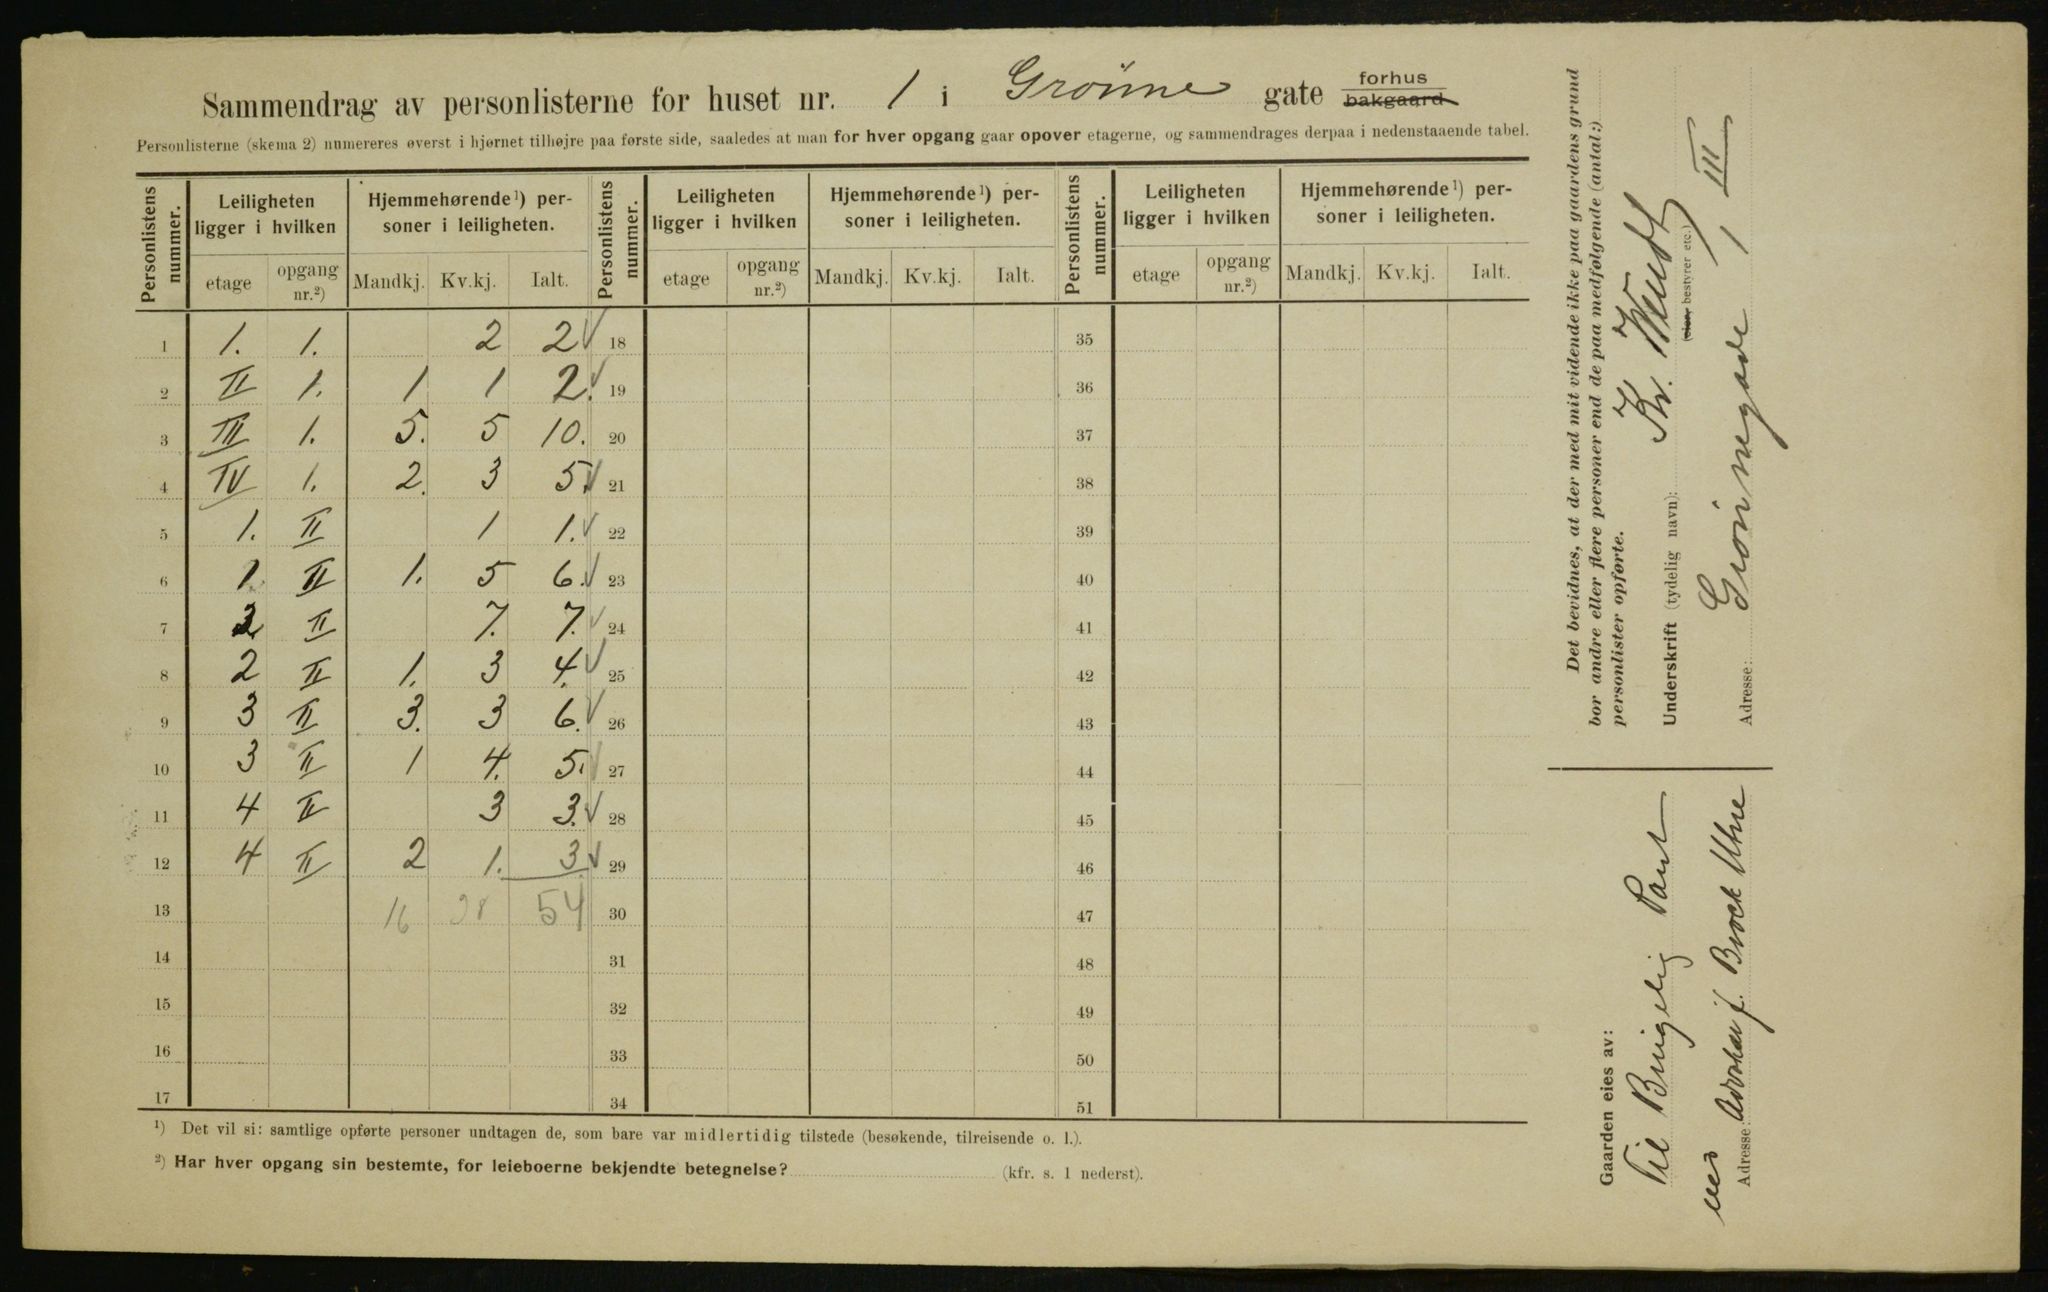 Sammendrag av personlisterne for huset nr. 1 i Grönne gate forhus bakgaard
Personlisterne (skema 2) numereres øverst i hjørnet tilhøjre paa første side, saaledes at man for hver opgang gaar opover etagerne, og sammendrages derpaa i nedenstaaende tabel.
Personlistens nummer. Leiligheten ligger i hvilken Hjemmehørende¹) personer i leiligheten. Personlistens nummer. Leiligheten ligger i hvilken Hjemmehørende¹) personer i leiligheten. Personlistens nummer. Leiligheten ligger i hvilken Hjemmehørende¹) personer i leiligheten.
etage opgang nr.²) Mandkj. Kv.kj. Ialt. etage opgang nr.²) Mandkj. Kv.kj. Ialt. etage opgang nr.²) Mandkj. Kv.kj. Ialt.
1 1. 1. 2 2 ✓ 18 35
2 II 1. 1 1 2. ✓ 19 36
3 III 1. 5. 5 10. 20 37
4 IV 1. 2. 3 5. ✓ 21 38
5 1. II 1 1. ✓ 22 39
6 1. II 1. 5 6. ✓ 23 40
7 2 II 7. 7. ✓ 24 41
8 2 II 1. 3 4. ✓ 25 42
9 3 II 3. 3 6. ✓ 26 43
10 3 II 1 4. 5. ✓ 27 44
11 4 II 3 3. ✓ 28 45
12 4 II 2 1. 3. ✓ 29 46
13 16 38 54 30 47
14 31 48
15 32 49
16 33 50
17 34 51
¹) Det vil si: samtlige opførte personer undtagen de, som bare var midlertidig tilstede (besøkende, tilreisende o. l.).
²) Har hver opgang sin bestemte, for leieboerne bekjendte betegnelse? (kfr. s. 1 nederst).
Det bevidnes, at der med mit vidende ikke paa gaardens grund
bor andre eller flere personer end de paa medfølgende (antal:)
personlister opførte.
Underskrift (tydelig navn): Kr. Wendt
(eier, bestyrer etc.)
Adresse: Grönnegade 1 III
Gaarden eies av:
Til Brugelig Pant
ved Advokat J. Brock Utne
Adresse: